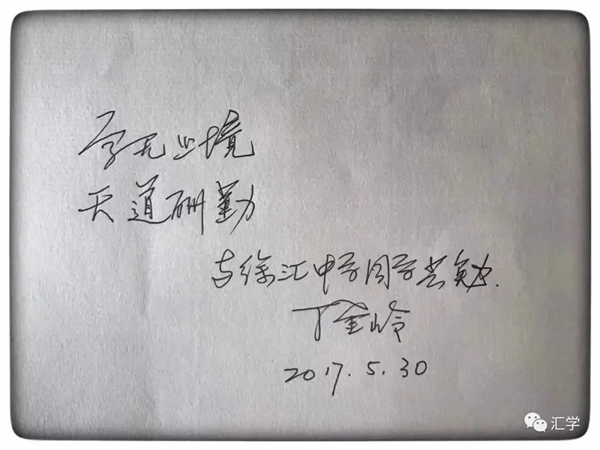 学无止境
天道酬勤
与徐汇中学同学共勉.
丁奎岭
2017.5.30
汇学